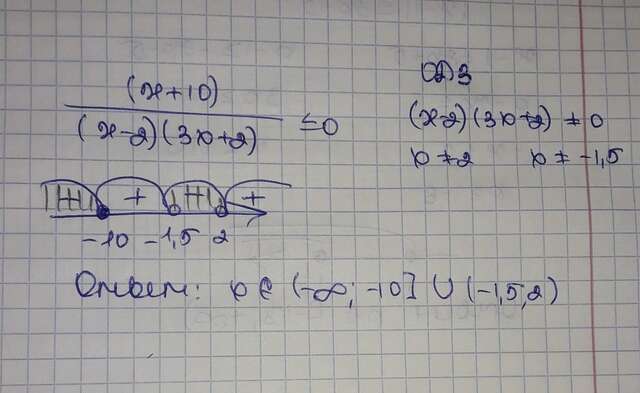 (x+10)
(x-2)(3x+2) ≤0
ОДЗ
(x-2)(3x+2) ≠ 0
x ≠ 2 x ≠ -1,5
+ +
-10 -1,5 2
Ответ: x ∈ (-∞; -10] ∪ (-1,5, 2)